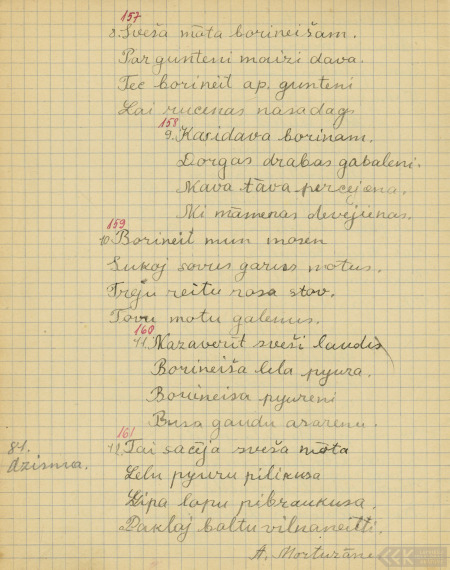 157
8. Sveša māta borineišam.
Par gunteni maizi dava.
Tec borineit ap. gunteni
Lai rucenas nasadag.
158
9. Kasidava borinam.
Dorgas drabas gabaleni.
Nava tāva percejena,
Ni māmenas devejienas.
159
10. Borineit mun mosen
Sukoj sovus garus motus.
Treju reitu rosa stov.
Tovu motu galenus.
160
11. Nazaverit sveši laudis
Borineiša lela pyura.
Borineisa pyureni
Busa gaudu asarenu.
161
84. dzisma.
12. Tai sacēja sveša mōta
Lelu pyuru pilikusa
Lipa lopu pibraukusa.
Daklaj baltu vilnaneitti.
A. Morturāne